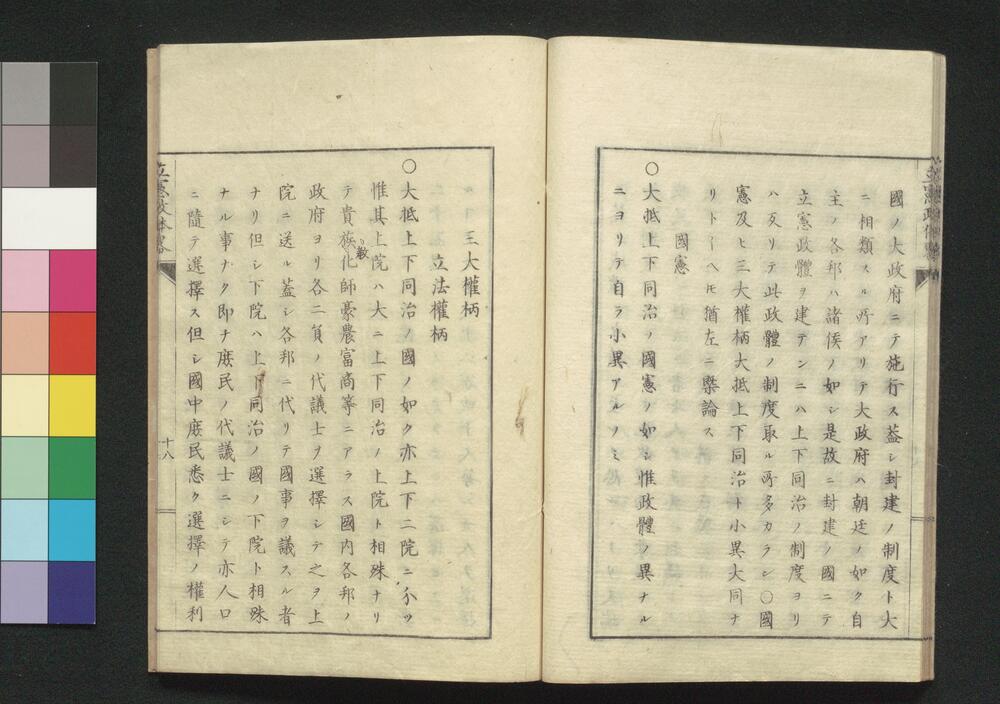 國ノ大政府ニテ施行ス葢シ封建ノ制度ト大
ニ相類スル所アリテ大政府ハ朝廷ノ如ク自
主ノ各邦ハ諸侯ノ如シ是故ニ封建ノ國ニテ
立憲政體ヲ建テンニハ上下同治ノ制度ヨリ
ハ反リテ此政體ノ制度取ル所多カラン〇國
憲及ヒ三大權柄大抵上下同治ト小異大同ナ
リトイヘ𪜈猶左ニ槩論ス
國憲
〇大抵上下同治ノ國憲ノ如シ惟政體ノ異ナル
ニヨリテ自ラ小異アルノミ
三大權柄
立法權柄
〇大抵上下同治ノ國ノ如ク亦上下二院ニ分ツ
惟其上院ハ大ニ上下同治ノ上院ト相殊ナリ
テ貴族、敎化師豪農富商等ニアラス國内各邦ノ
政府ヨリ各二員ノ代議士ヲ選擇シテ之ヲ上
院ニ送ル葢シ各邦ニ代リテ國事ヲ議スル者
ナリ但シ下院ハ上下同治ノ國ノ下院ト相殊
ナル事ナク即チ庻民ノ代議士ニシテ亦人口
ニ隨テ選擇ス但シ國中庻民悉ク選擇ノ權利
立憲政體略
十八